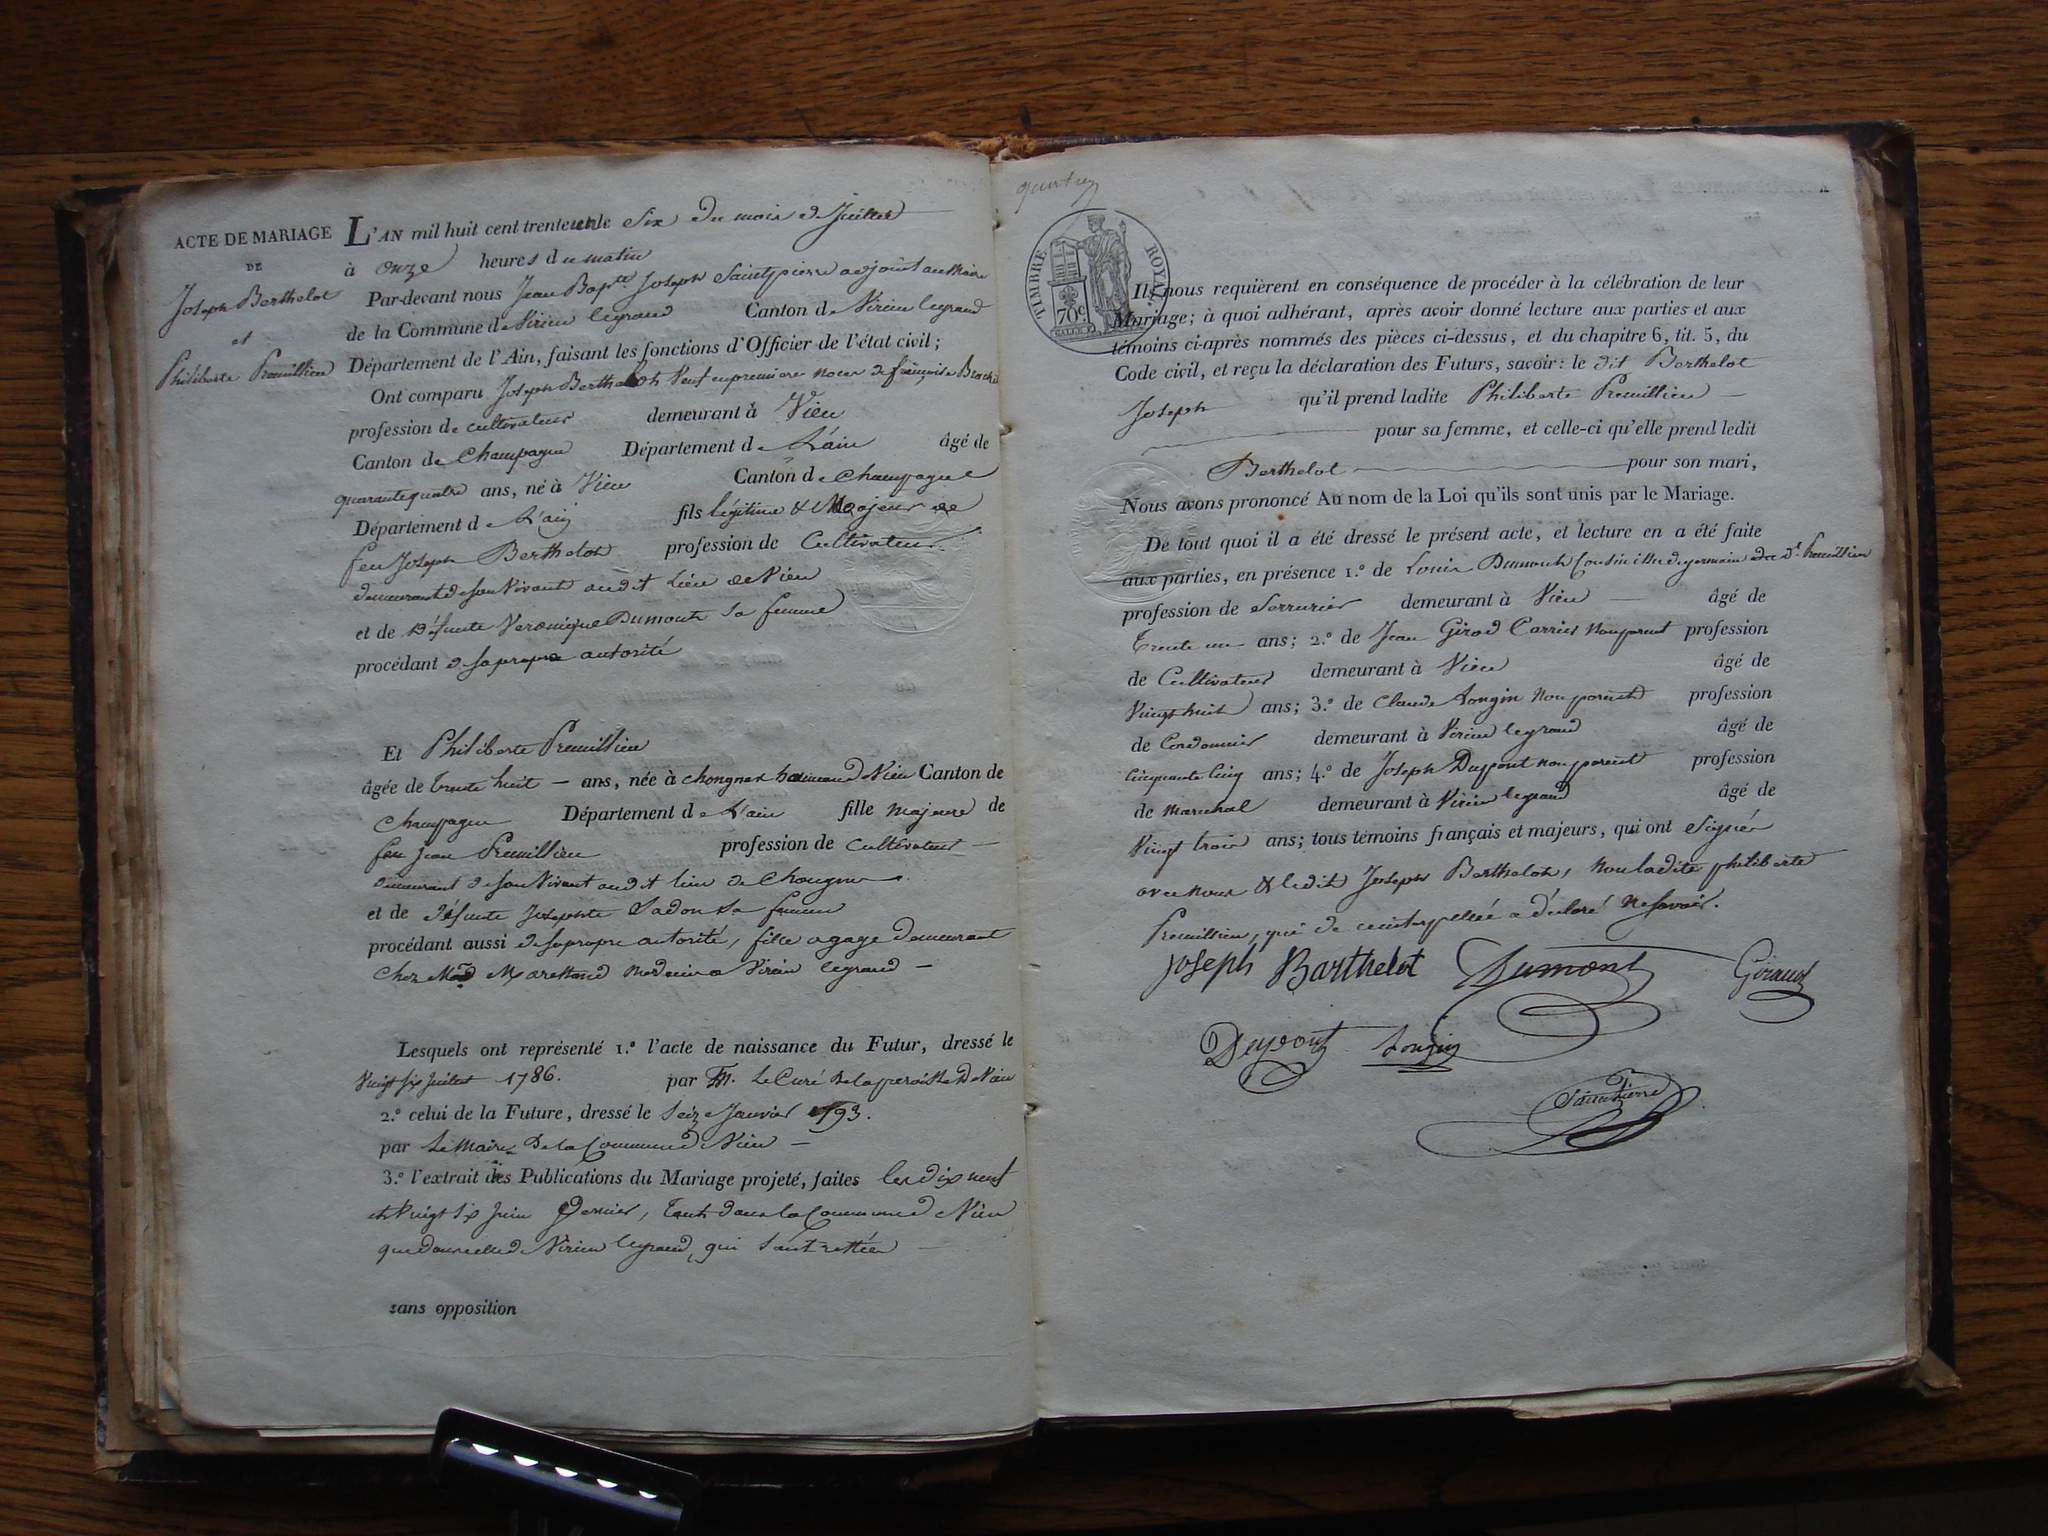 ACTE DE MARIAGE
DE
Joseph Berthelot
et
Philiberte Premillieu
L'AN mil huit cent trente un le Six du mois de Juillet
à onze heures du matin
Par-devant nous Jean Bapte Joseph Saintpierre adjoint au Maire
de la Commune de Virieu legrand Canton de Virieu legrand
Département de l'Ain, faisant les fonctions d'Officier de l'état civil;
Ont comparu Joseph Berthelot Veuf en premiere noces de françoise
profession de cultivateur demeurant à Vieu
Canton de Champagne Département de L'ain âgé de
quarante quatre ans, né à Vieu Canton de Champagne
Département de L'ain fils légitime & Majeur de
feu Joseph Berthelot profession de Cultivateur
demeurant de son Vivant audit Lieu de Vieu
et de Défunte Veronique Dumont Sa femme
procédant de sa propre autorité
Et Philiberte Premillieu
âgée de trente huit ans, née à chongnes hameau de Vieu Canton de
Champagne Département de L'ain fille majeure de
feu Jean Premillieu profession de cultivateur
demeurant de son Vivant audit lieu de Chongnes
et de défunte Josephte Sa femme
procédant aussi de sa propre autorité, fille a gage demeurant
chez Mr medecin a Virieu legrand
Lesquels ont représenté 1.º l'acte de naissance du Futur, dressé le
Vingt Six Juillet 1786. par M. Le Curé de la paroisse de Vieu
2.º celui de la Future, dressé le Seize Janvier 1793.
par Le Maire De la Commune de Vieu
3.º l'extrait des Publications du Mariage projeté, faites les dix neuf
et Vingt Six Juin Dernier, tant dans la Commune de Vieu
que dans celle de Virieu legrand, qui sont restées
sans opposition
TIMBRE ROYAL
70c.
Ils nous requièrent en conséquence de procéder à la célébration de leur
Mariage; à quoi adhérant, après avoir donné lecture aux parties et aux
témoins ci-après nommés des pièces ci-dessus, et du chapitre 6, tit. 5, du
Code civil, et reçu la déclaration des Futurs, savoir: le dit Berthelot
Joseph qu'il prend ladite Philiberte Premillieu
pour sa femme, et celle-ci qu'elle prend ledit
Berthelot pour son mari,
Nous avons prononcé Au nom de la Loi qu'ils sont unis par le Mariage.
De tout quoi il a été dressé le présent acte, et lecture en a été faite
aux parties, en présence 1.º de Louis Dumont Cousin issu de germain de Premillieu
profession de Serrurier demeurant à Vieu âgé de
Trente un ans; 2.º de Jean Girod Carrier Non parent profession
de Cultivateur demeurant à Vieu âgé de
Vingt huit ans; 3.º de Claude Longin Non parent profession
de Cordonnier demeurant à Virieu legrand âgé de
Cinquante Cinq ans; 4.º de Joseph Dupont non parent profession
de Marechal demeurant à Virieu legrand âgé de
Vingt trois ans; tous témoins français et majeurs, qui ont Signés
avec nous & ledit Joseph Berthelot, Non ladite philiberte
Premillieu, qui de ce interpellée a déclaré ne Savoir.
Joseph Barthelot Dumont Giraud
Deypont Longin
Saintpierre